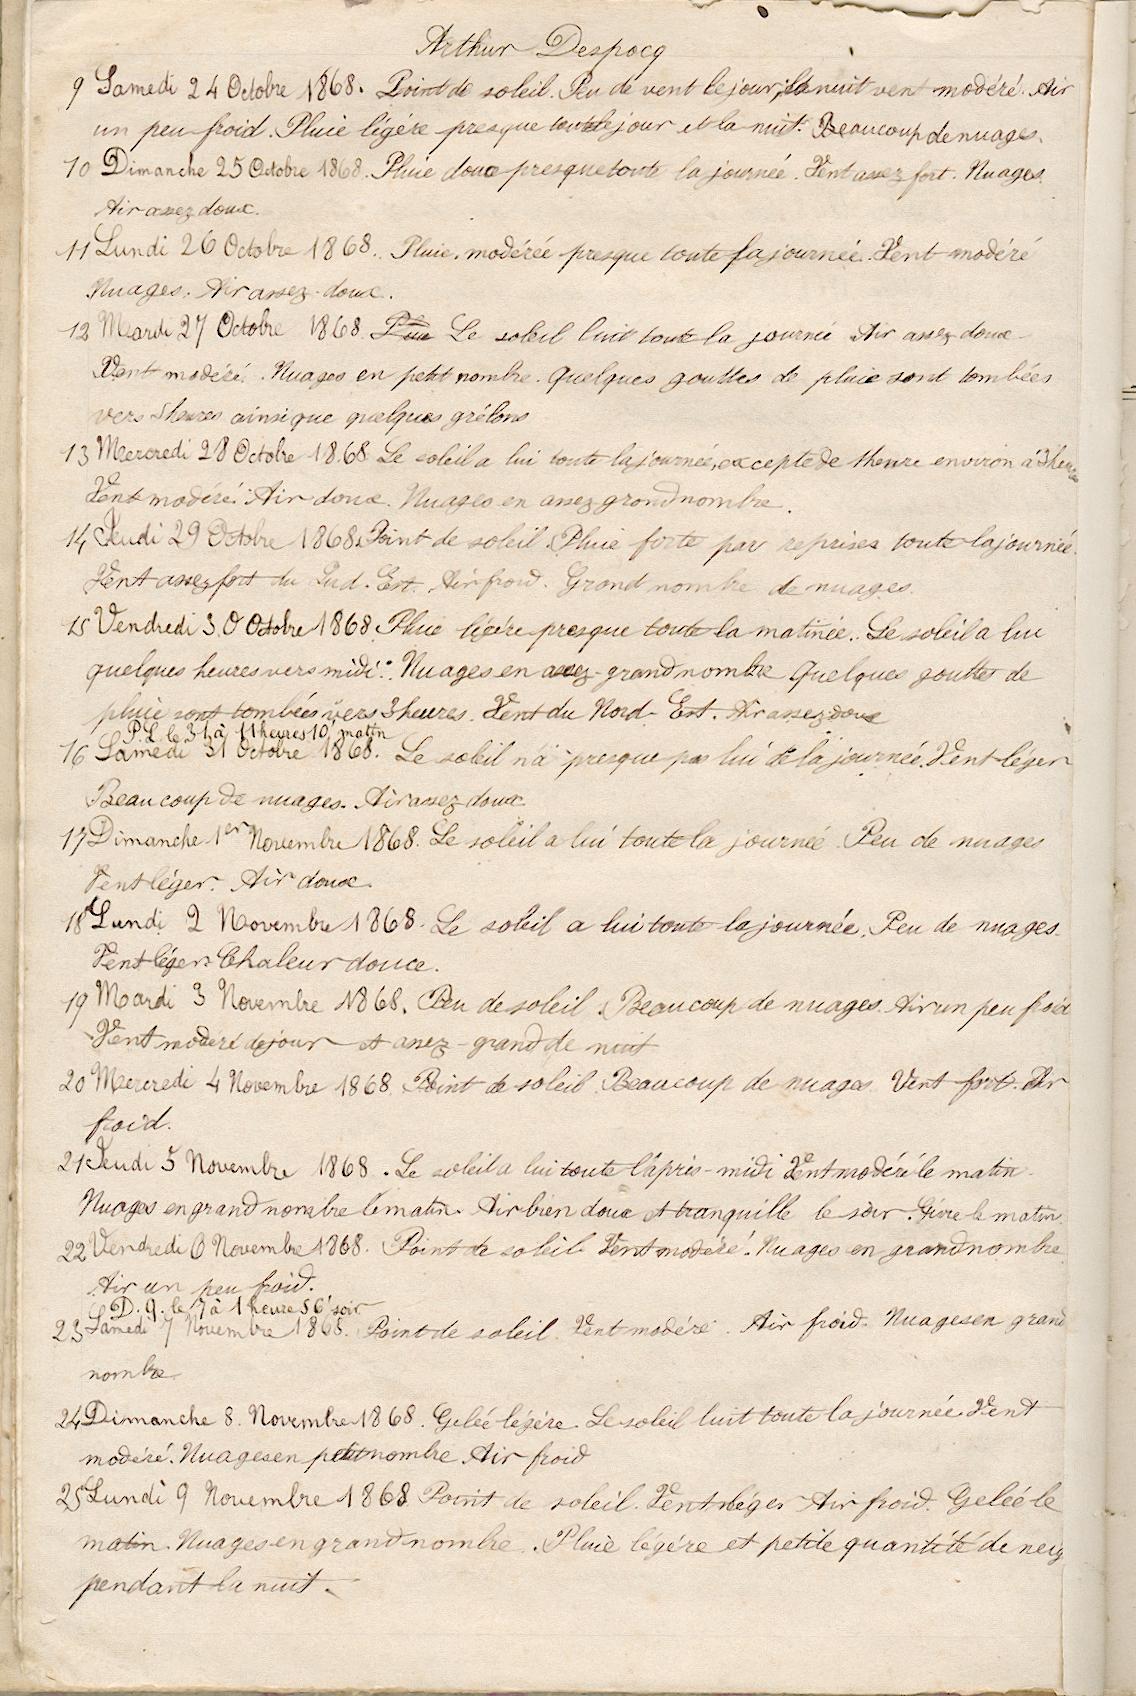 Arthur Despocq
9 Samedi 24 Octobre 1868. Point de soleil. Peu de vent le jour, la nuit vent modéré. Air
un peu froid. Pluie légére presque tout le jour et la nuit. Beaucoup de nuages.
10 Dimanche 25 Octobre 1868. Pluie douce presque toute la journée. Vent assez fort. Nuages.
Air assez doux.
11 Lundi 26 Octobre 1868. Pluie modérée presque toute la journée. Vent modéré
Nuages. Air assez doux.
12 Mardi 27 Octobre 1868. Le soleil luit toute la journée Air assez doux
Vent modéré. Nuages en petit nombre. Quelques gouttes de pluie sont tombées
vers 5 heures ainsi que quelques grêlons
13 Mercredi 28 Octobre 1868 Le soleil a lui toute la journée, excepté de 1 heure environ à 3 heu
Vent modéré. Air doux. Nuages en assez grand nombre.
14 Jeudi 29 Octobre 1868. Point de soleil. Pluie forte par reprises toute la journée.
Vent assez fort du Sud-Est. Air froid. Grand nombre de nuages.
15 Vendredi 30 Octobre 1868 Pluie légére presque toute la matinée. Le soleil a lui
quelques heures vers midi. Nuages en assez grand nombre Quelques gouttes de
pluie sont tombées vers 3 heures. Vent du Nord-Est. Air assez doux
P.L. le 31 à 11 heures 10' matin
16 Samedi 31 Octobre 1868. Le soleil n'a presque pas lui de la journée. Vent léger
Beaucoup de nuages. Air assez doux.
17 Dimanche 1er Novembre 1868. Le soleil a lui toute la journée Peu de nuages
Vent léger. Air doux.
18 Lundi 2 Novembre 1868. Le soleil a lui toute la journée. Peu de nuages.
Vent léger. Chaleur douce.
19 Mardi 3 Novembre 1868. Peu de soleil. Beaucoup de nuages. Air un peu froid
Vent modéré de jour et assez grand de nuit
20 Mercredi 4 Novembre 1868 Point de soleil Beaucoup de nuages. Vent fort. Air
froid.
21 Jeudi 5 Novembre 1868. Le soleil a lui toute l'après-midi Vent modéré le matin.
Nuages en grand nombre le matin. Air bien doux et tranquille le soir. Givre le matin.
22 Vendredi 6 Novembre 1868. Point de soleil. Vent modéré. Nuages en grand nombre
Air un peu froid.
D.Q. le 7 à 1 heure 56' soir
23 Samedi 7 Novembre 1868. Point de soleil. Vent modéré. Air froid. Nuages en grand
nombre.
24 Dimanche 8 Novembre 1868. Gelée légére. Le soleil luit toute la journée. Vent
modéré. Nuages en petit nombre. Air froid
25 Lundi 9 Novembre 1868 Point de soleil. Vent léger Air froid. Gelée le
matin. Nuages en grand nombre. Pluie légére et petite quantité de neig
pendant la nuit.